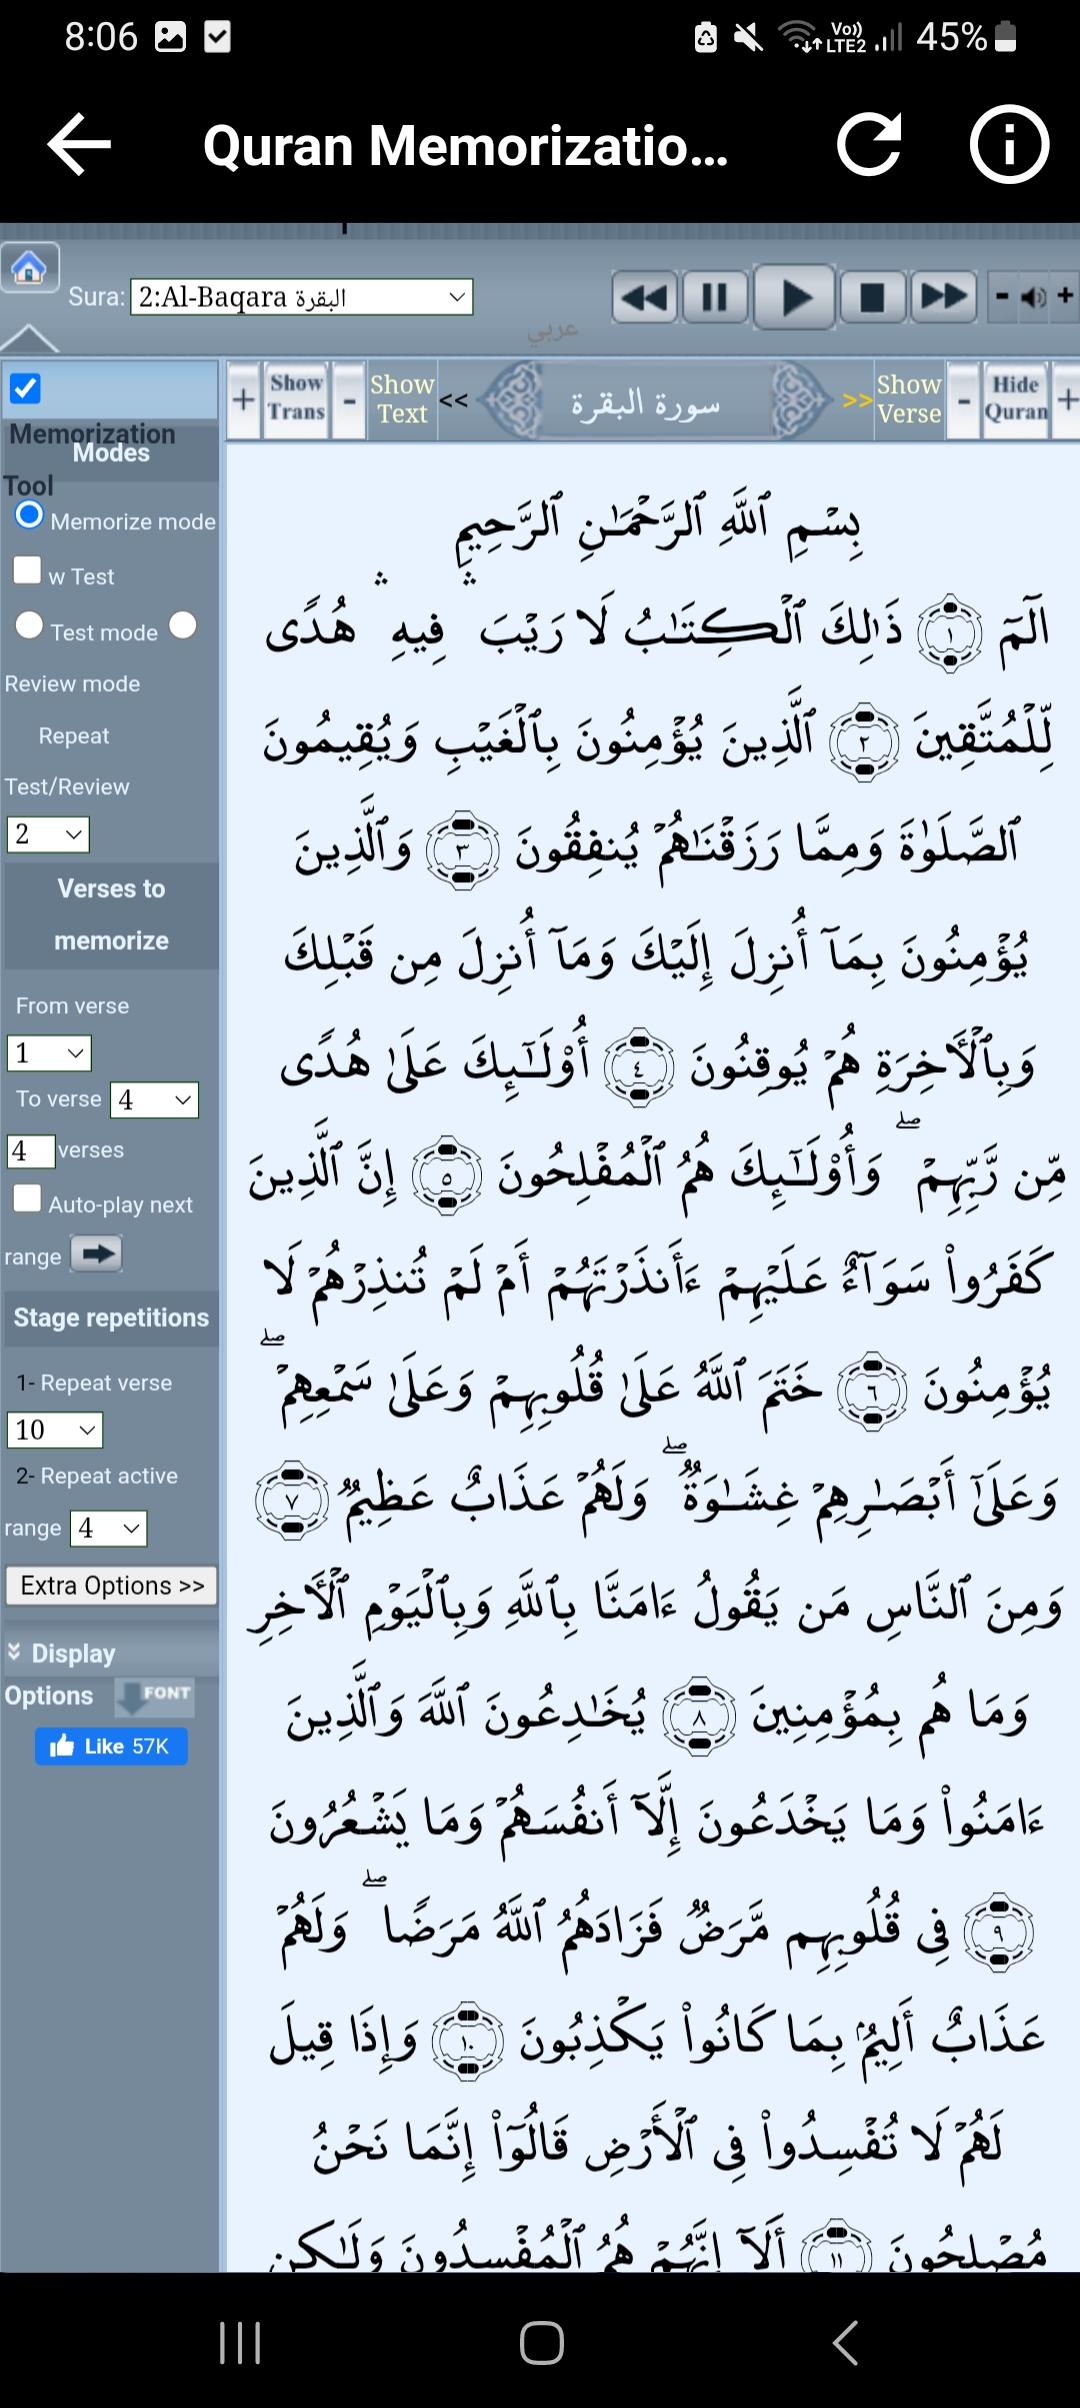 8:06
Vo)) LTE2 45%
Quran Memorizatio...
Sura: 2:Al-Baqara البقرة
عربي
- +
Memorization Tool
Modes
Memorize mode
w Test
Test mode
Review mode
Repeat
Test/Review
2
Verses to
memorize
From verse
1
To verse 4
4 verses
Auto-play next
range
Stage repetitions
1- Repeat verse
10
2- Repeat active
range 4
Extra Options >>
Display
Options FONT
Like 57K
+ Show Trans - Show Text << سورة البقرة >> Show Verse - Hide Quran +
بِسْمِ ٱللَّهِ ٱلرَّحْمَٰنِ ٱلرَّحِيمِ
الٓمٓ ١ ذَٰلِكَ ٱلْكِتَٰبُ لَا رَيْبَ ۛ فِيهِ ۛ هُدًى
لِّلْمُتَّقِينَ ٢ ٱلَّذِينَ يُؤْمِنُونَ بِٱلْغَيْبِ وَيُقِيمُونَ
ٱلصَّلَوٰةَ وَمِمَّا رَزَقْنَٰهُمْ يُنفِقُونَ ٣ وَٱلَّذِينَ
يُؤْمِنُونَ بِمَآ أُنزِلَ إِلَيْكَ وَمَآ أُنزِلَ مِن قَبْلِكَ
وَبِٱلْأَخِرَةِ هُمْ يُوقِنُونَ ٤ أُو۟لَٰٓئِكَ عَلَىٰ هُدًى
مِّن رَّبِّهِمْ ۖ وَأُو۟لَٰٓئِكَ هُمُ ٱلْمُفْلِحُونَ ٥ إِنَّ ٱلَّذِينَ
كَفَرُوا۟ سَوَآءٌ عَلَيْهِمْ ءَأَنذَرْتَهُمْ أَمْ لَمْ تُنذِرْهُمْ لَا
يُؤْمِنُونَ ٦ خَتَمَ ٱللَّهُ عَلَىٰ قُلُوبِهِمْ وَعَلَىٰ سَمْعِهِمْ ۖ
وَعَلَىٰٓ أَبْصَٰرِهِمْ غِشَٰوَةٌ ۖ وَلَهُمْ عَذَابٌ عَظِيمٌ ٧
وَمِنَ ٱلنَّاسِ مَن يَقُولُ ءَامَنَّا بِٱللَّهِ وَبِٱلْيَوْمِ ٱلْأَخِرِ
وَمَا هُم بِمُؤْمِنِينَ ٨ يُخَٰدِعُونَ ٱللَّهَ وَٱلَّذِينَ
ءَامَنُوا۟ وَمَا يَخْدَعُونَ إِلَّآ أَنفُسَهُمْ وَمَا يَشْعُرُونَ
٩ فِى قُلُوبِهِم مَّرَضٌ فَزَادَهُمُ ٱللَّهُ مَرَضًا ۖ وَلَهُمْ
عَذَابٌ أَلِيمٌۢ بِمَا كَانُوا۟ يَكْذِبُونَ ١٠ وَإِذَا قِيلَ
لَهُمْ لَا تُفْسِدُوا۟ فِى ٱلْأَرْضِ قَالُوٓا۟ إِنَّمَا نَحْنُ
مُصْلِحُونَ ١١ أَلَآ إِنَّهُمْ هُمُ ٱلْمُفْسِدُونَ وَلَٰكِن